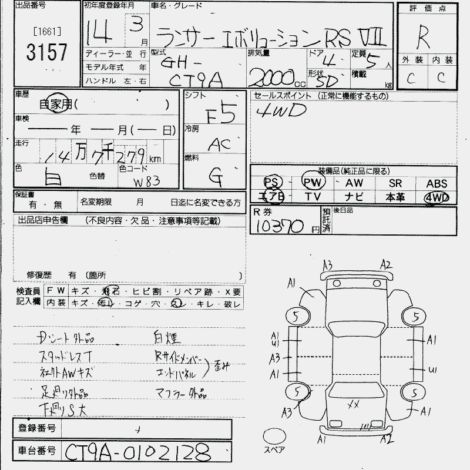 出品番号
[1661]
3157
初年度登録年月
14年 3月
ディーラー・並行
モデル年式 年
ハンドル 左・右
車名・グレード
ランサーエボリューションRS Ⅶ
型式 GH-CT9A
排気量 2000cc
ドア 4
形状 SD
定員 5人
積載 kg
評価点
R
外装 内装
C C
車歴
自家用( )
車検
年 月 日( )
走行
14万7千279km
色 白
色替
色コード W83
シフト
F5
冷房
AC
燃料
G
セールスポイント(正常に機能するもの)
4WD
装備品(純正品に限る)
PS PW AW SR ABS
エアB TV ナビ 本革 4WD
保証書
有・無
名変期限 月 日迄に名変できる方
R券
10370円
預託済
後日品
出品店申告欄 (不良内容・欠品・注意事項等記載)
修復歴 有 (箇所 )
検査員記入欄
FW キズ・飛石・ヒビ割・リペア跡・X要
内装 キズ・汚レ・コゲ・穴・スレ・キレ・破レ
Dシート外品
スタッドレスT
社外AWキズ
足廻り外品
下廻りS大
白煙
Rサイドメンバー
エンドパネル
歪み
マフラー外品
A3 A2
A1
5 5
A1 U1
A1
A3
A1 U1
A3
5 5
A1
XX
A1 A2
スペア
登録番号
車台番号 CT9A-0102128